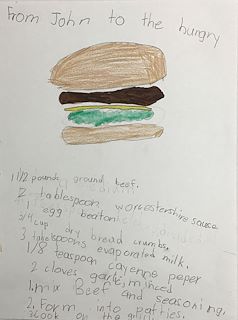 From John to the hungry
1 1/2 pounds ground beef.
2 tablespoon worcestershire sauce
1 egg beaton
3/4 cup dry bread crumbs.
3 tablespoons evaporated milk.
1/8 teaspoon cayenne peper
2 cloves garlic minced
1. mix Beef and seasoning.
2. Form into patties.
3 Cook on the grill